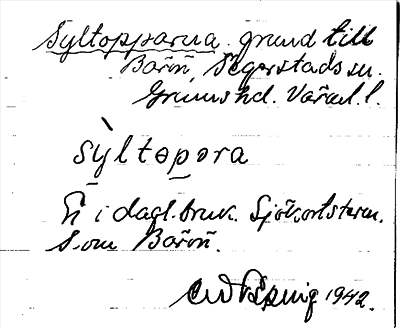 Syltopparna. grund till
Barön, Segerstads sn.
Grums hd. Värml. l.
sỳltopora
Ej i dagl. bruk. Sjökortsterm.
Som Barön.
1942.